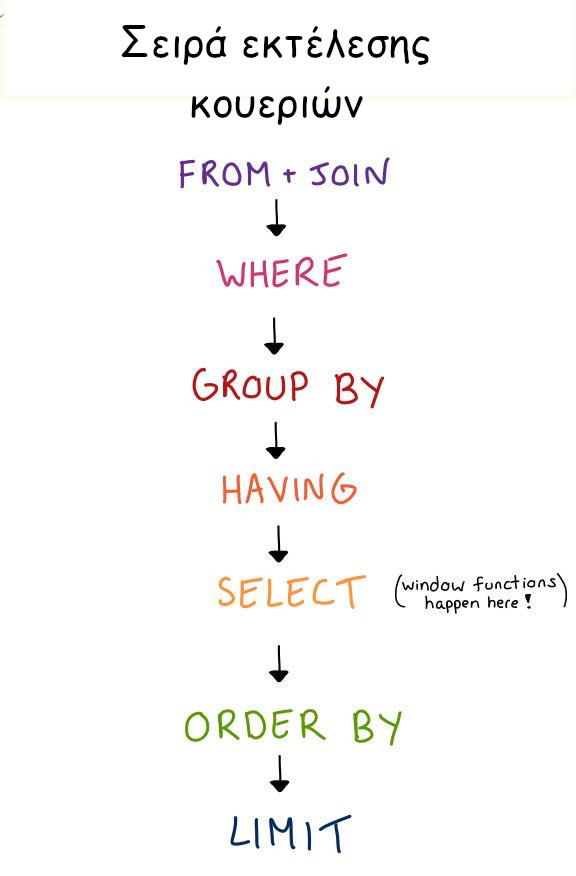 Σειρά εκτέλεσης
κουεριών
FROM + JOIN
WHERE
GROUP BY
HAVING
SELECT
(window functions
happen here!)
ORDER BY
LIMIT